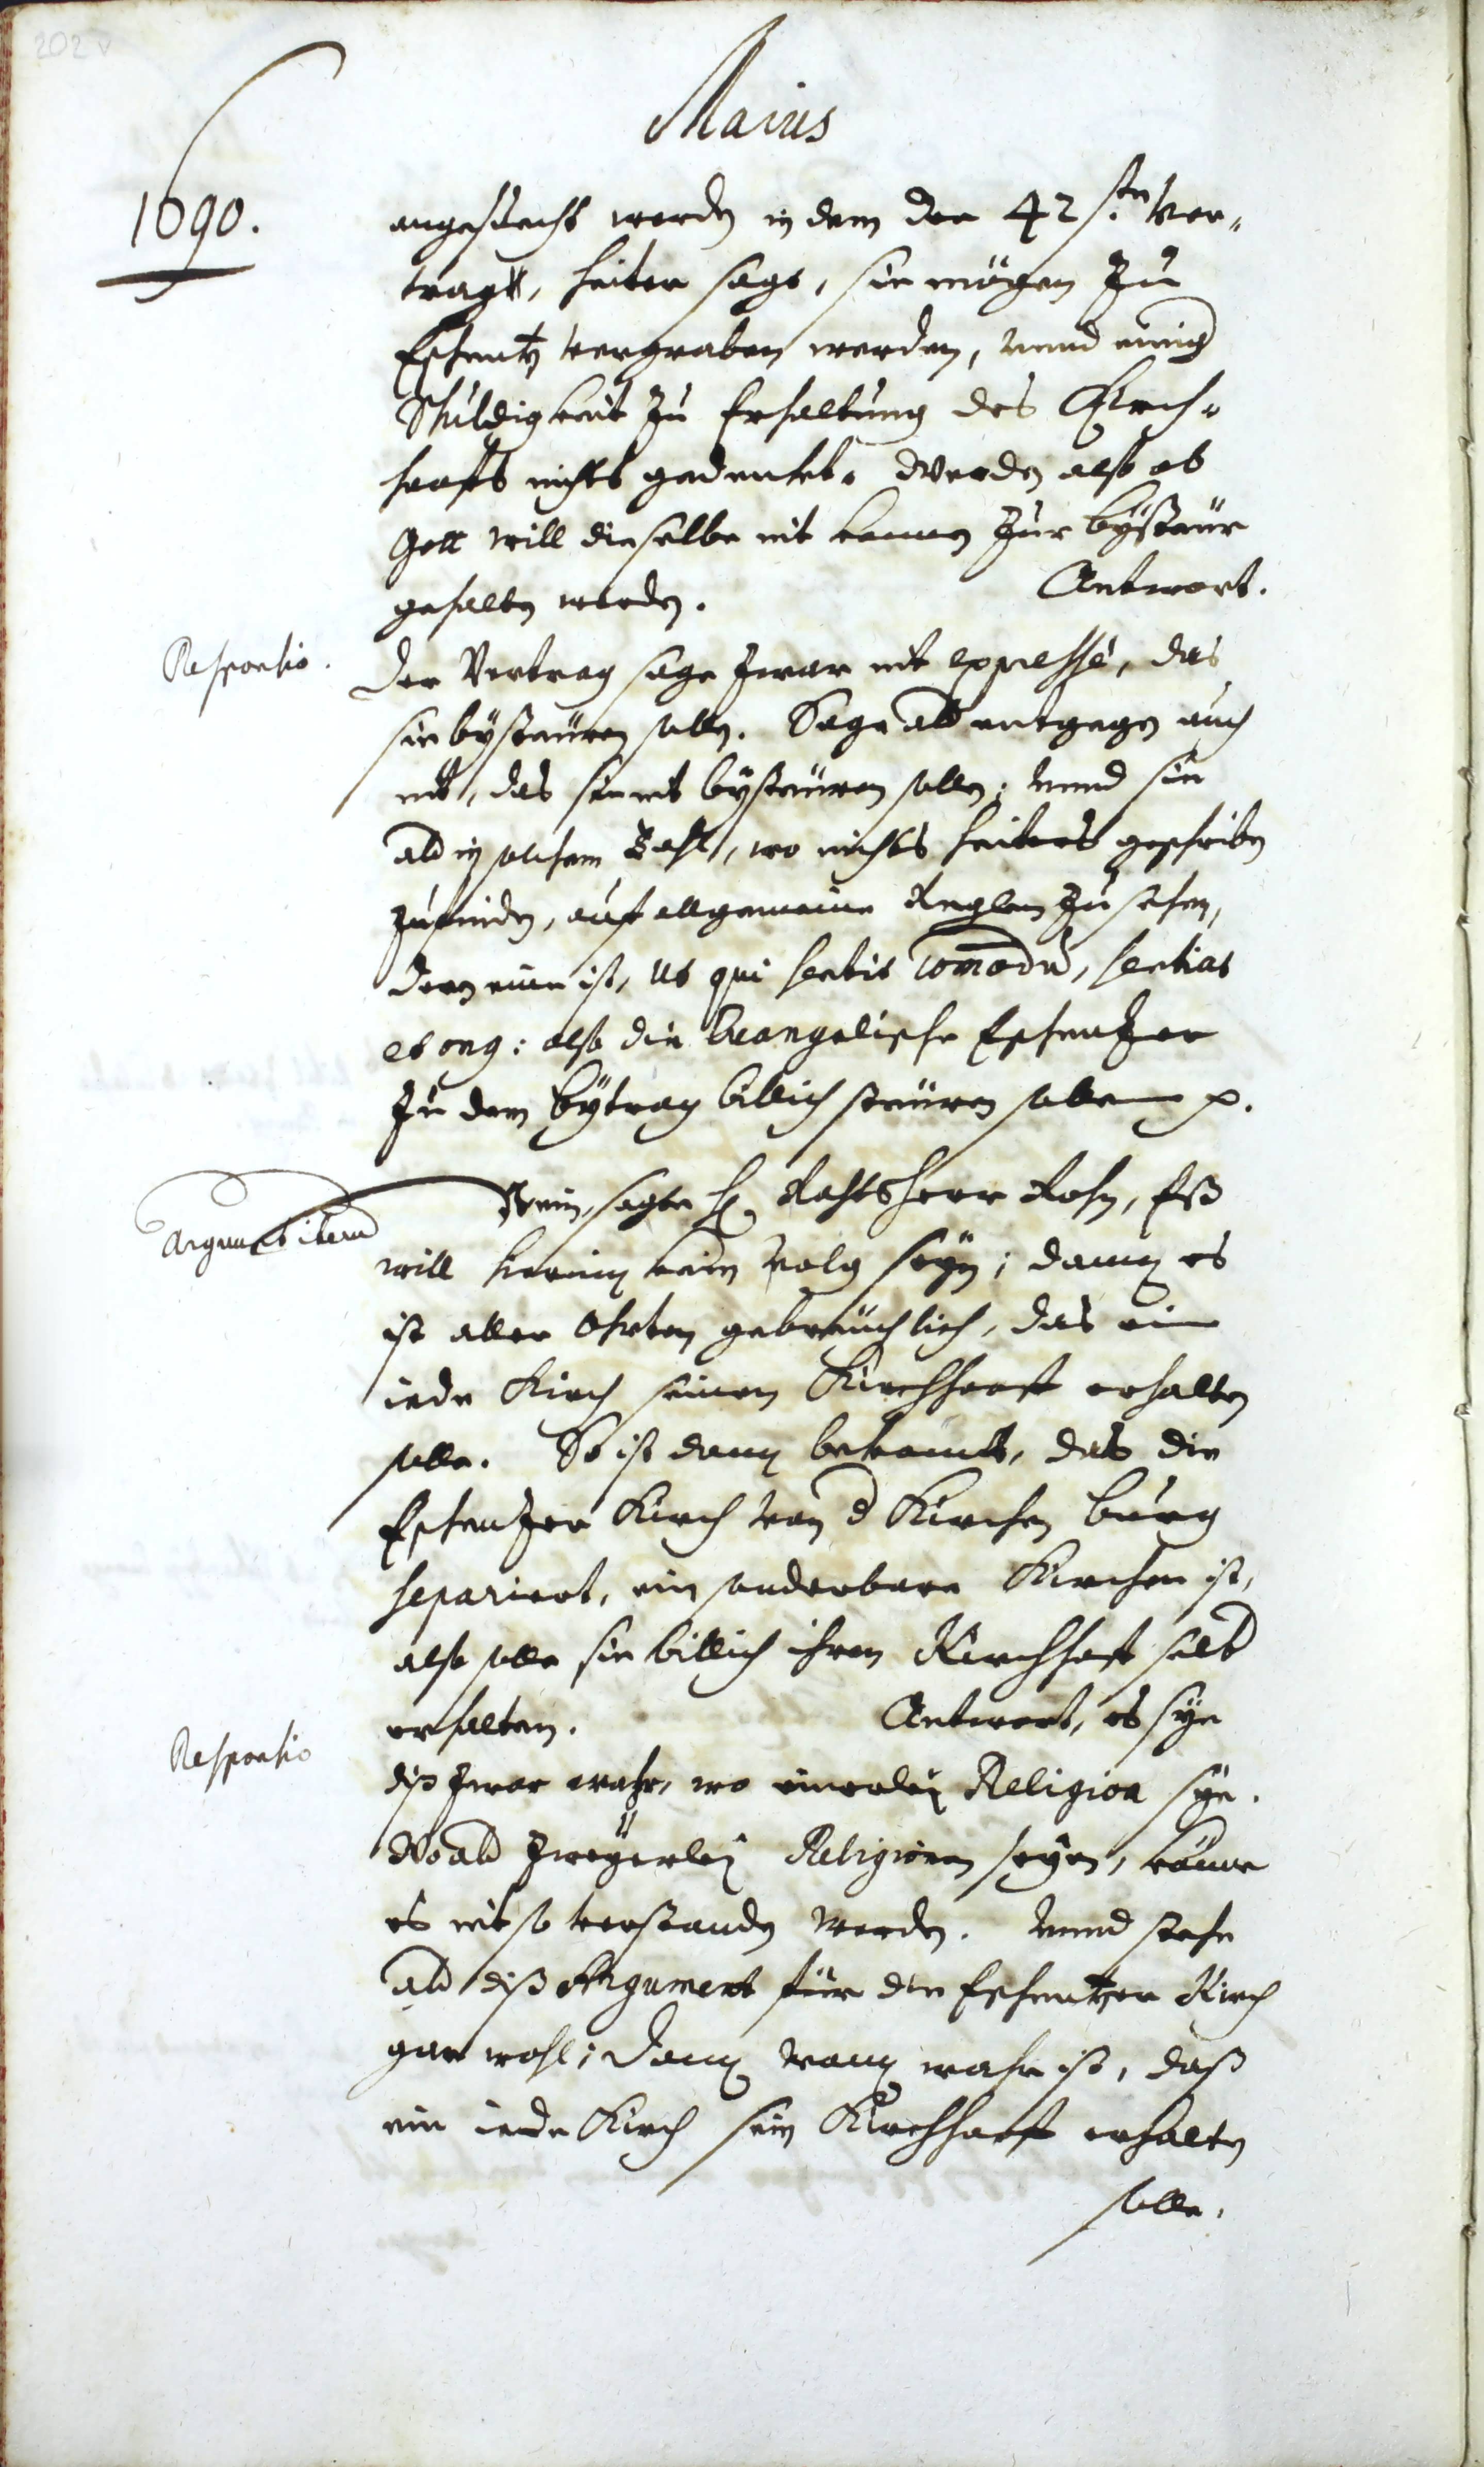 202 v
Maius
1690.
angesucht werden in dem der 42ste Ver-
trag, heiter sagt, sie mögen zu
Eschentz vergraben werden, unnd einig
Schuldigkeit zu Erhaltung des Kirch-
hoofs nichts gedencket. Werden also ob
Gott will dieselbe nit können zur bÿsteür
gehalten werden. Antwort.
Responsio.
Der Vertrag sage zwar nit expressè, das
sie bÿsteüren sollen. Sage aber entgegen auch
nit, das sie nit bÿsteüren sollen; unnd sie
aber in solchem Fahl, wo nichts heiters geschriben
zufinden, auf allgemeine Reglen zu sehen,
deren eine ist, ut qui sentit comodu, sentiat
et onq: also die Evangelische Eschentzer
zu dem bÿtrag billich steüren sollen p.
Argument iterum
Nein, sagte H. Rahtsherr Rohn, Eß
will hierin kein Volg seÿn; dann es
ist aller Ohrten gebräuchlich, das ein
iede Kirch seinen Kirchhooff erhalten
solle. So ist dann bekannt, das die
Eschentzer Kirch von d Kirchen Burg
separiert, ein sonderbare Kirchen ist,
also solle sie billich ihren Kirchhoff selb
erhalten. Antwort, es sÿe
Responsio
diß zwar wahr, wo einerleÿ Religion sÿe.
Wo aber zweÿerleÿ Religionen seÿen, könne
es nit so verstanden werden. Unnd stehe
aber diß Argument für die Eschentzer Kirch
gar wohl; dann wann wahr ist, daß
ein iede Kirch sein Kirchhooff erhalten
solle,